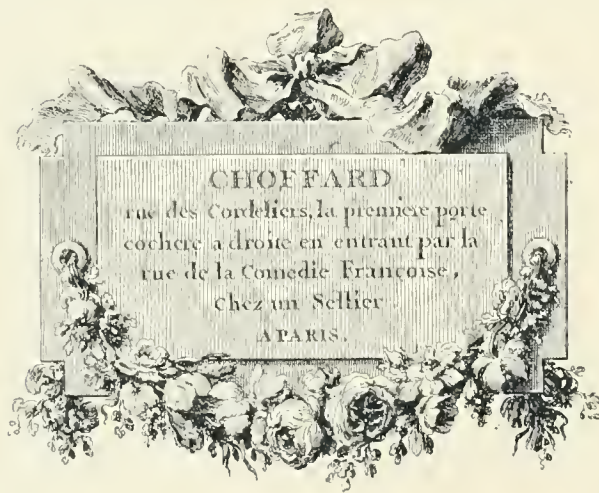 CHOFFARD
rue des Cordeliers, la premiere porte
cochere a droite en entrant par la
rue de la Comedie Françoise,
Chez un Sellier.
A PARIS.